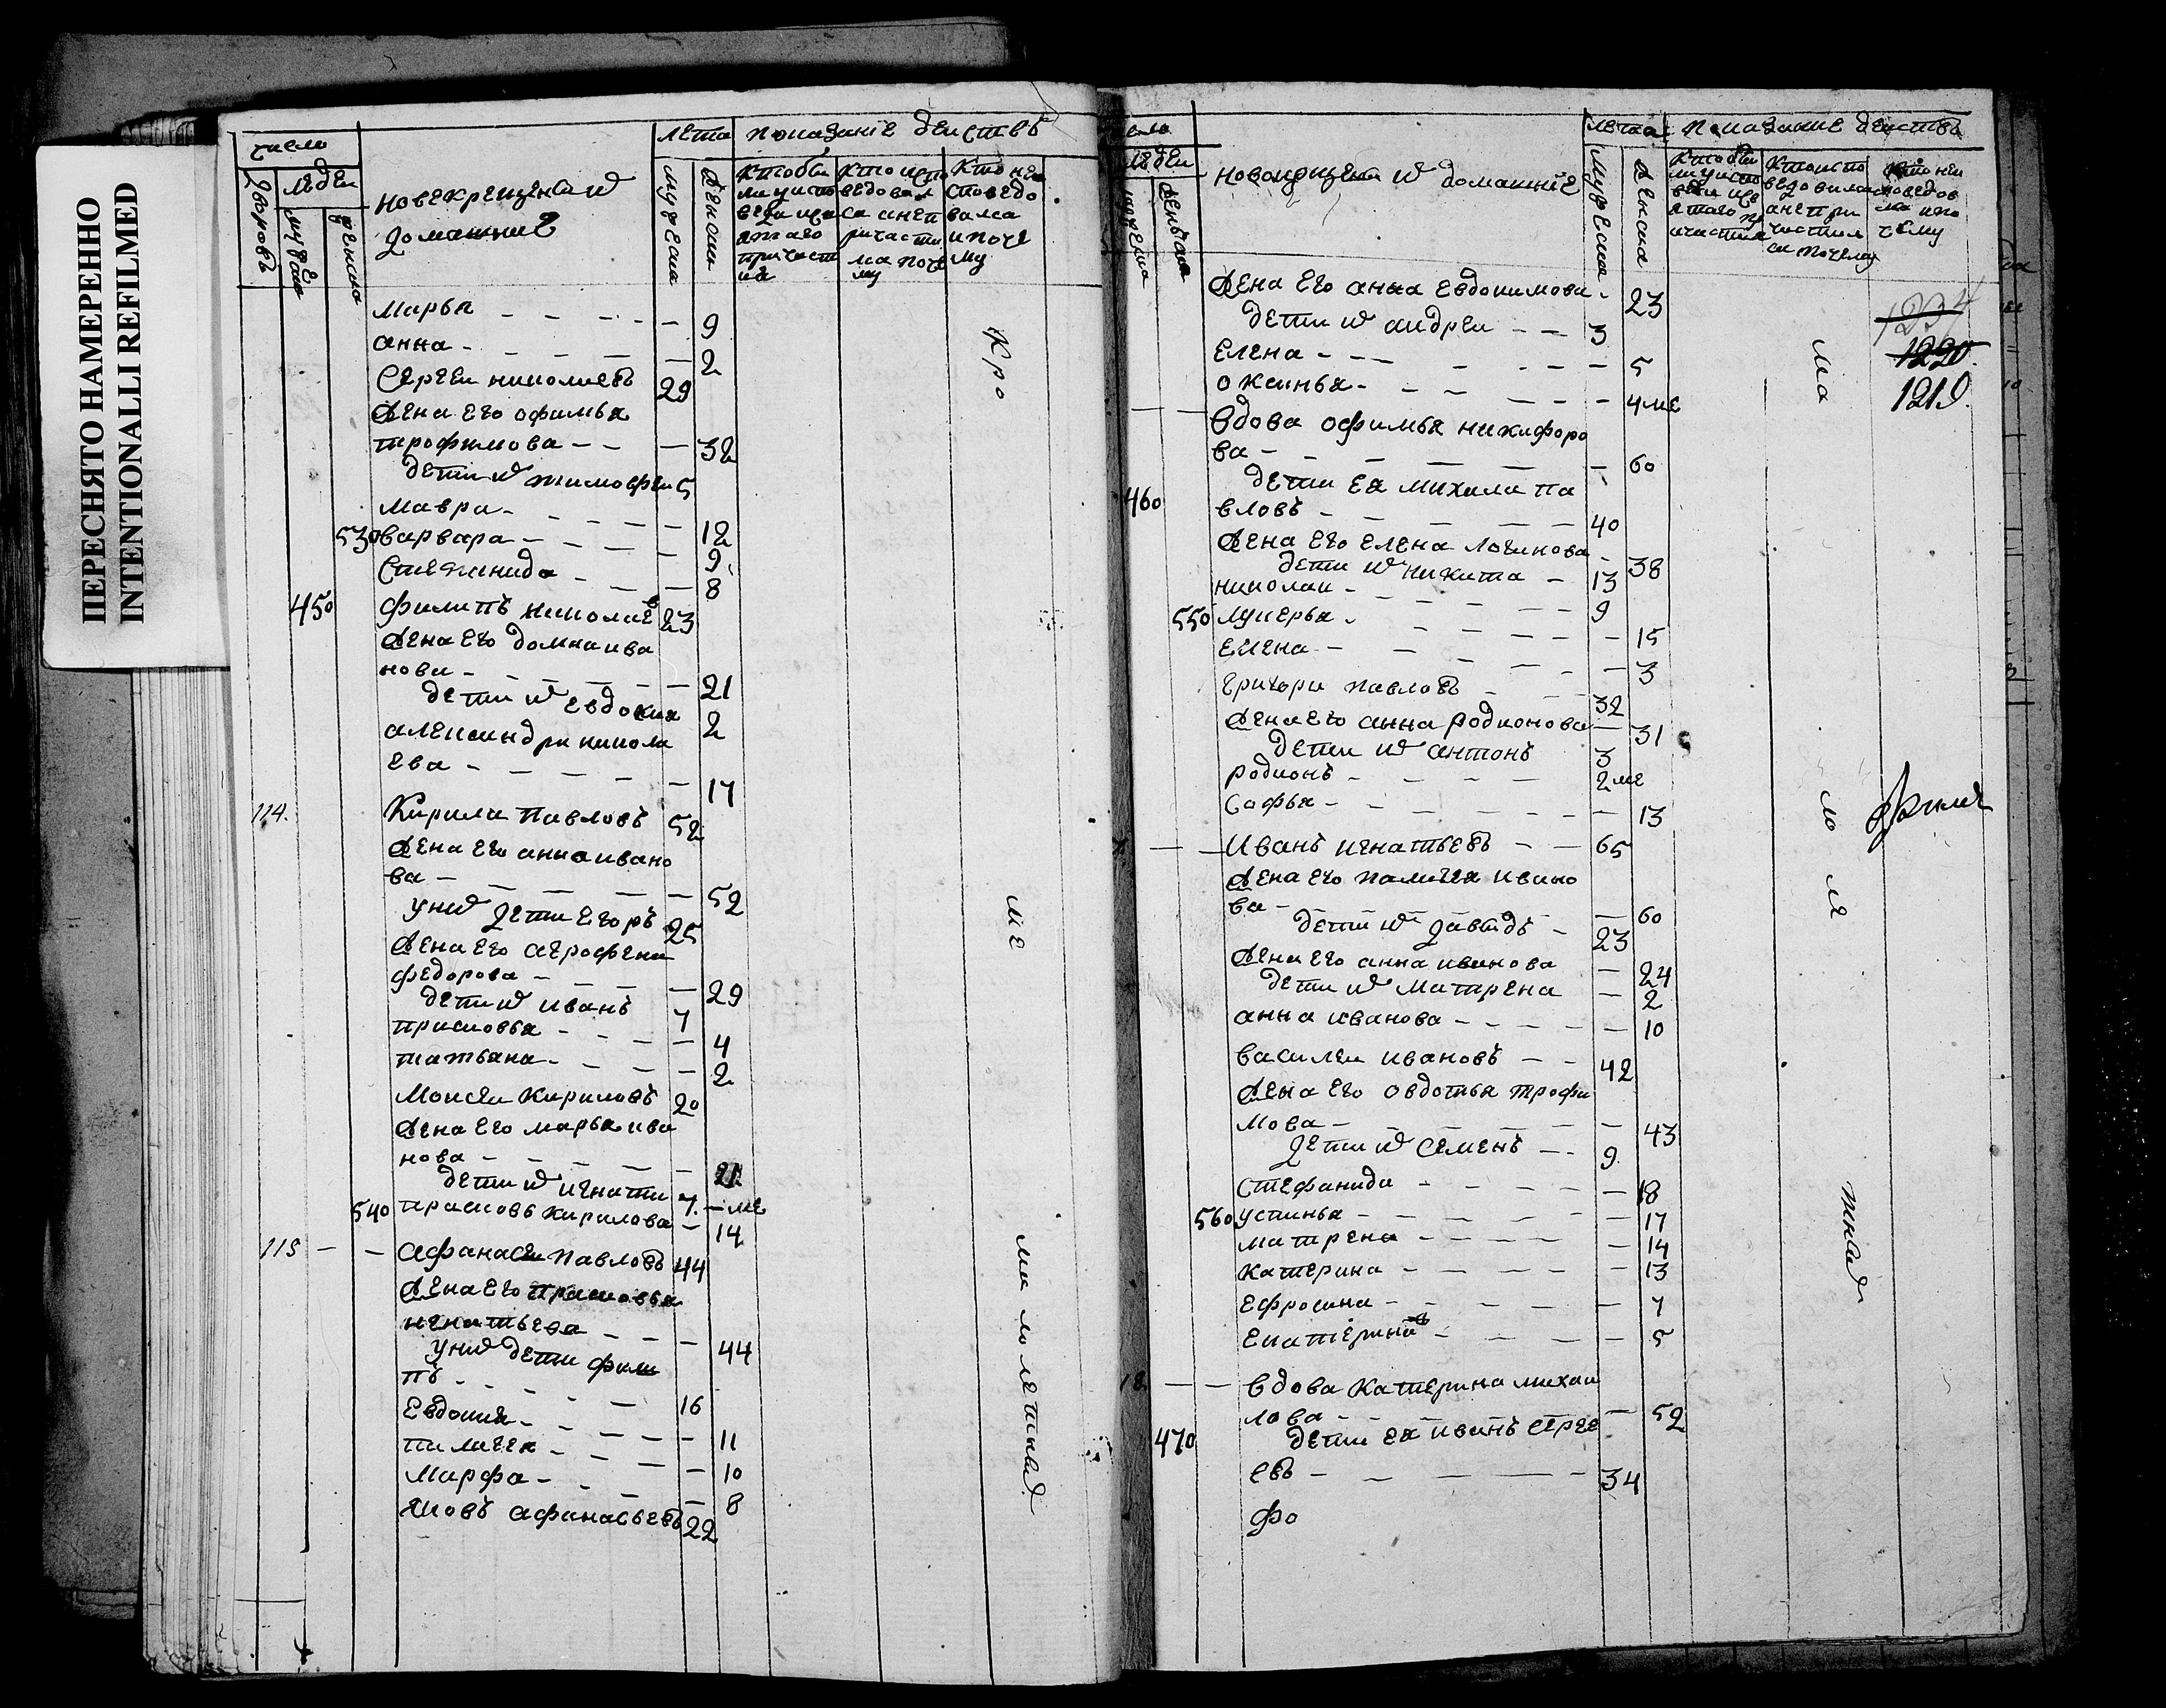 ПЕРЕСНЯТО НАМЕРЕННО
INTENTIONALLI REFILMED
число
лета показанïе деиствъ
дворовъ
людеи
мужеска
женска
новекрещены и
домашние
мужеска
женски
Марья - - - - - 9
анна - - - - - 2
Сергеи николаевъ 29
Жена его офимья
трофимова - - - 32
дети их тимофеи 5
мавра - - - - - 12
530 варвара - - - - - 9
Степанида - - - 8
450 филипъ николаевъ 23
Жена его домна ива
нова - - - - - 21
дети их евдокия 2
александра никола
ева - - - - - 17
114. Кирила павловъ 52
Жена его анна ивано
ва - - - - - 52
у них дети егоръ 25
Жена его агрофена
федорова - - - - 29
дети их иванъ 7
прасковья - - - - 4
татьяна - - - - - 2
Моисеи Кириловъ 20
Жена его марья ива
нова - - - - - 21
дети их игнати 7 - ме
540 прасковь кирилова - 14
115 - - афанасеи павловъ 44
Жена его прасковья
игнатьева - - - 44
у них дети фили
пъ - - - - - 16
Евдокия - - - - - 11
пилагея - - - - - 10
Марфа - - - - 8
яковъ афанасьевъ 22
Кро
ме
ма ло ле тных
людеи
женска
новокрещены и домашнïе
лета показание деиствъ
мужеска
женска
Жена его анна евдокимова - 23
дети их андреи - - 3
Елена - - - - - - - 5
оксинья - - - - - - 4 ме
- - вдова офимья никифоро
ва - - - - - - 60
460 дети ея михаила па
вловъ - - - - - 40
Жена его елена логинова - 38
дети их никита - 13
николаи - - - - - - 9
550 лукерья - - - - - - 15
Елена - - - - - - 3
григори павловъ - - - 32
Жена его анна родионова - 31
дети их антонъ 3
родионъ - - - - 2 ме
Софья - - - - - - 13
- - Иванъ игнатьевъ - - 65
Жена его палагея ивано
ва - - - - - - 60
дети их давыдъ - 23
Жена его анна иванова - 24
дети их матрена - 2
анна иванова - - - - - 10
василеи ивановъ - - 42
Жена его овдотья трофи
мова - - - - - - 43
дети их семенъ - - 9
Стефанида - - - - - 18
560 устинья - - - - - - 17
матрена - - - - - 14
катерина - - - - - 13
ефросина - - - - - 7
екатерина - - - - - 5
- - вдова катерина михаи
лова - - - - - 52
470 дети ея иванъ серге
евъ - - - - - 34
фо
ма
ло
ля
тных
1224
1220
1219.